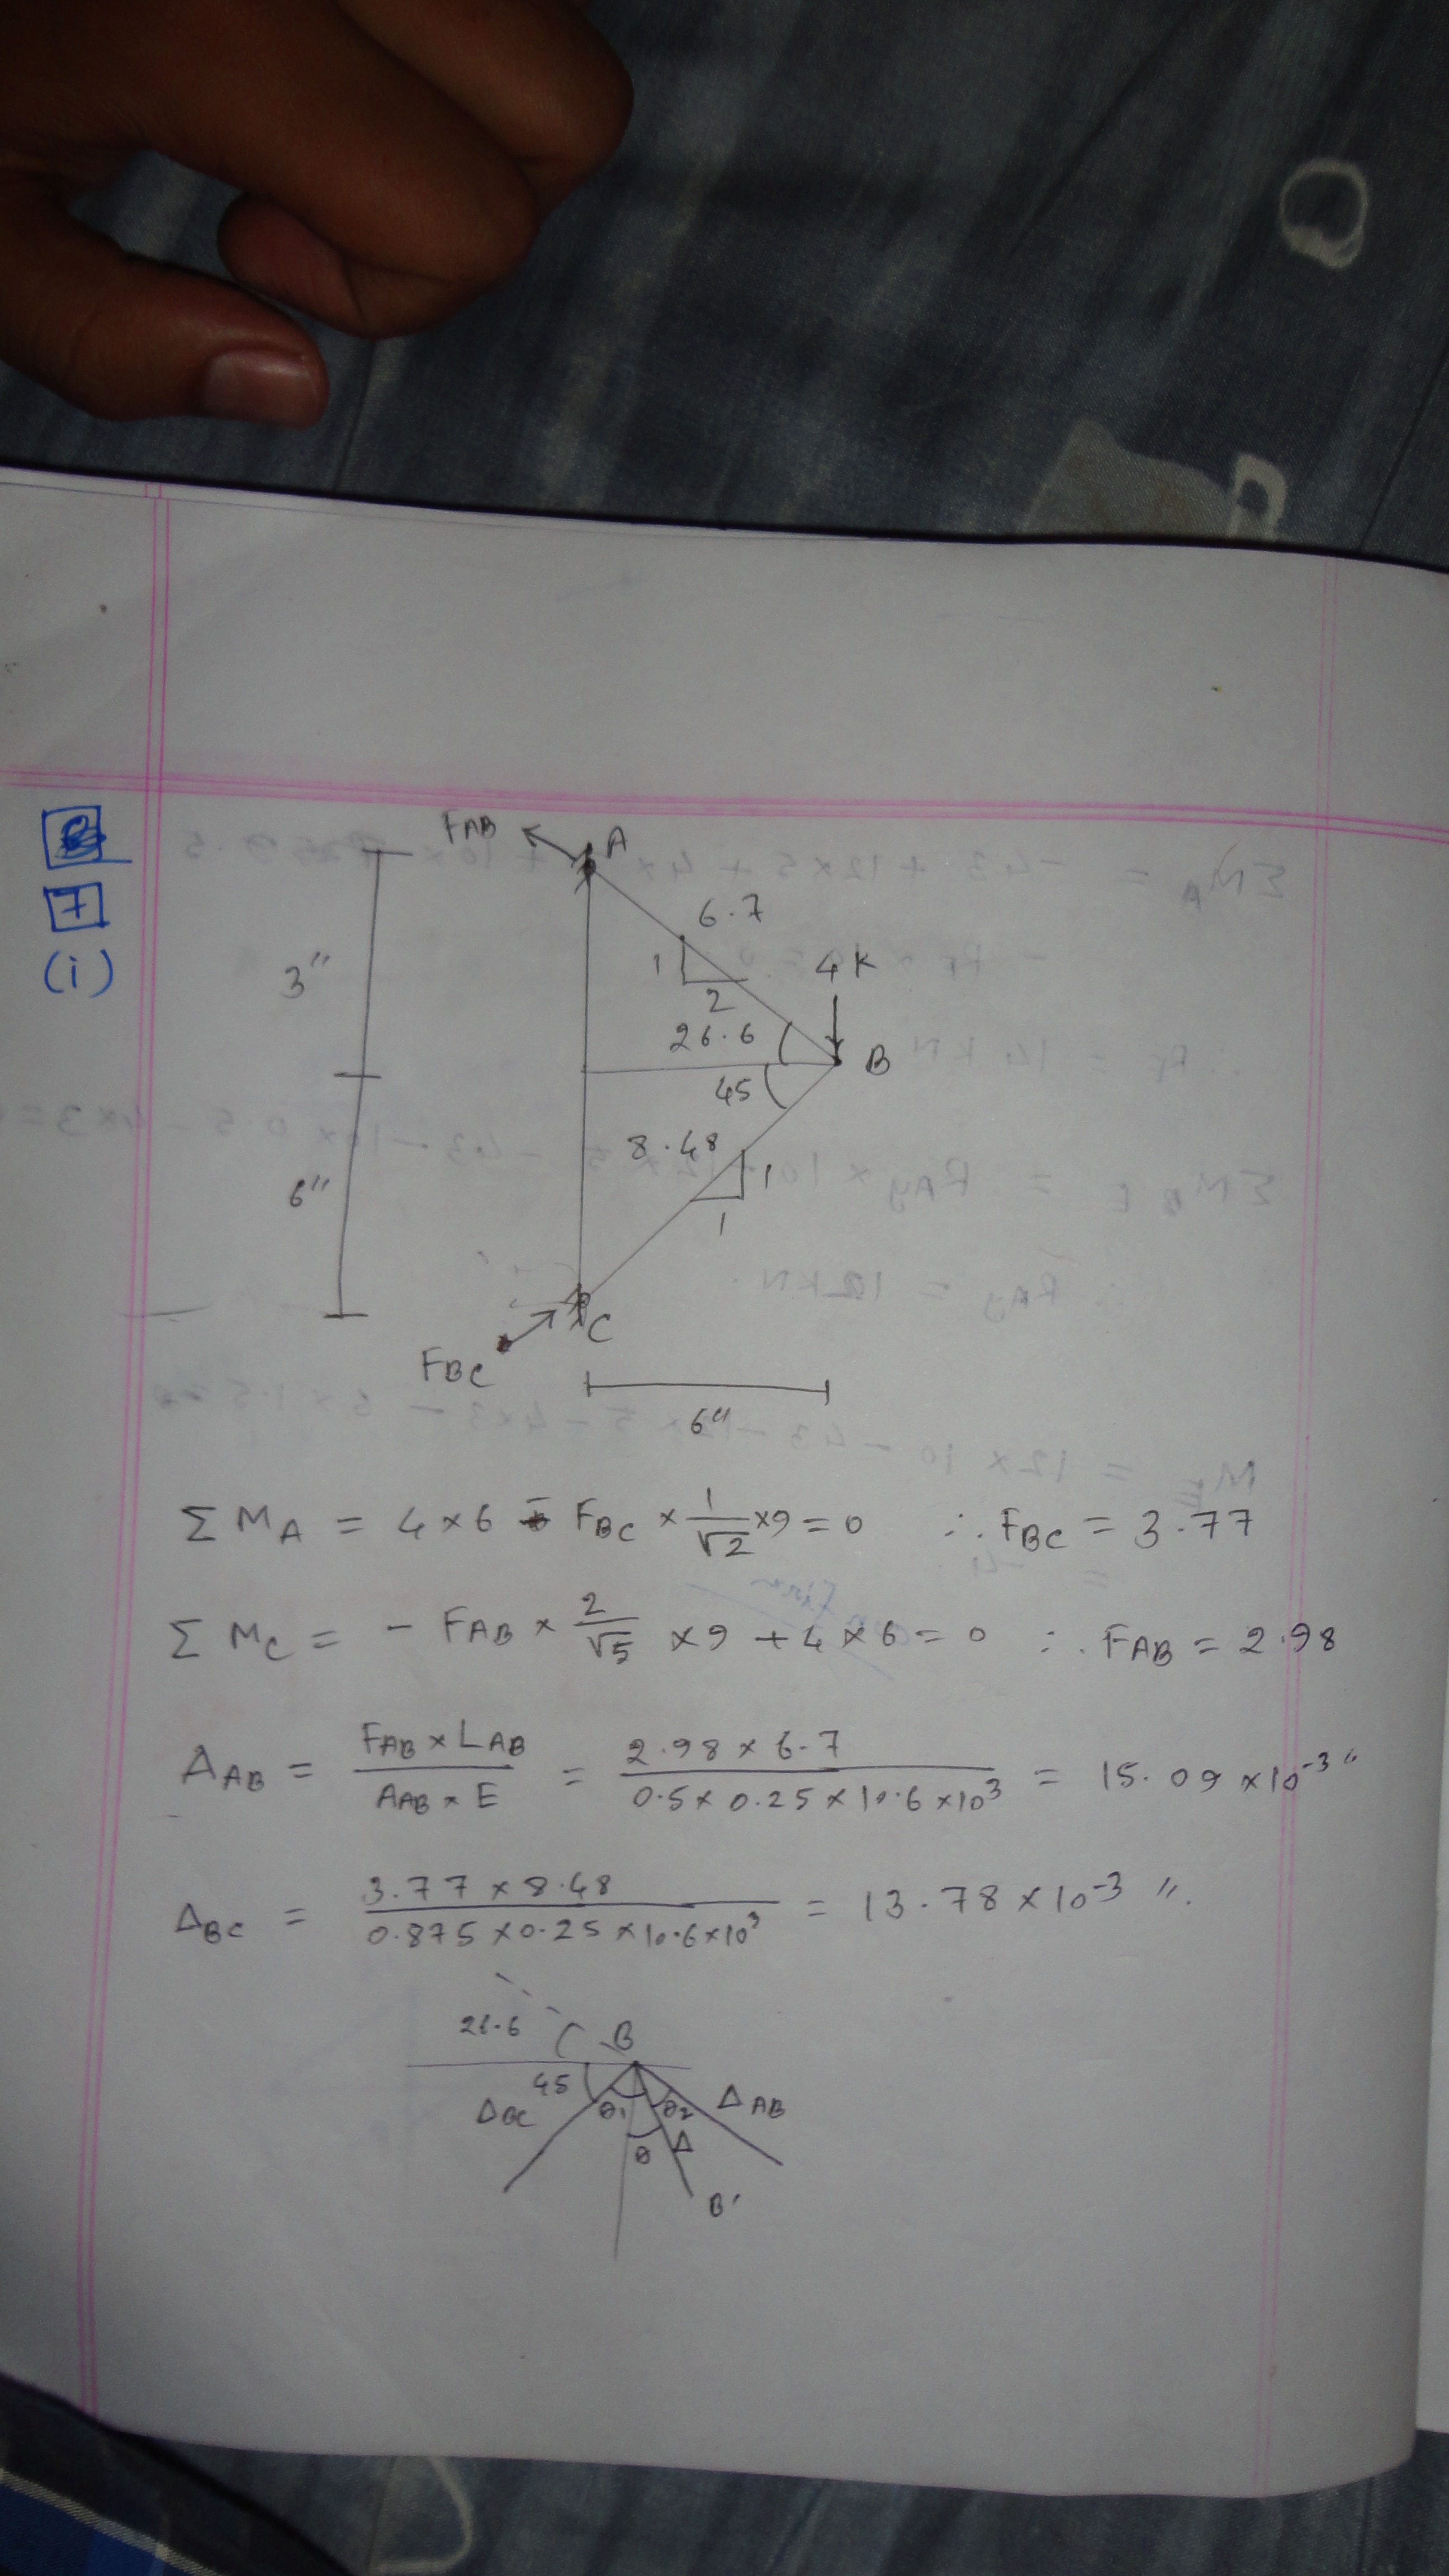 7
(i)
FAB
A
3"
6.7
1
2
4K
26.6
B
45
8.48
6"
1
1
C
FBC
6"
Σ MA = 4×6 - FBC × 1/√2 ×9 = 0 ∴ FBC = 3.77
Σ MC = - FAB × 2/√5 ×9 + 4×6 = 0 ∴ FAB = 2.98
ΔAB = FAB × LAB / AAB × E = 2.98 × 6.7 / 0.5 × 0.25 × 10.6 × 10³ = 15.09 × 10⁻³ "
ΔBC = 3.77 × 8.48 / 0.875 × 0.25 × 10.6 × 10³ = 13.78 × 10⁻³ ".
26.6
B
45
ΔBC
θ1
θ2
ΔAB
θ
Δ
B'